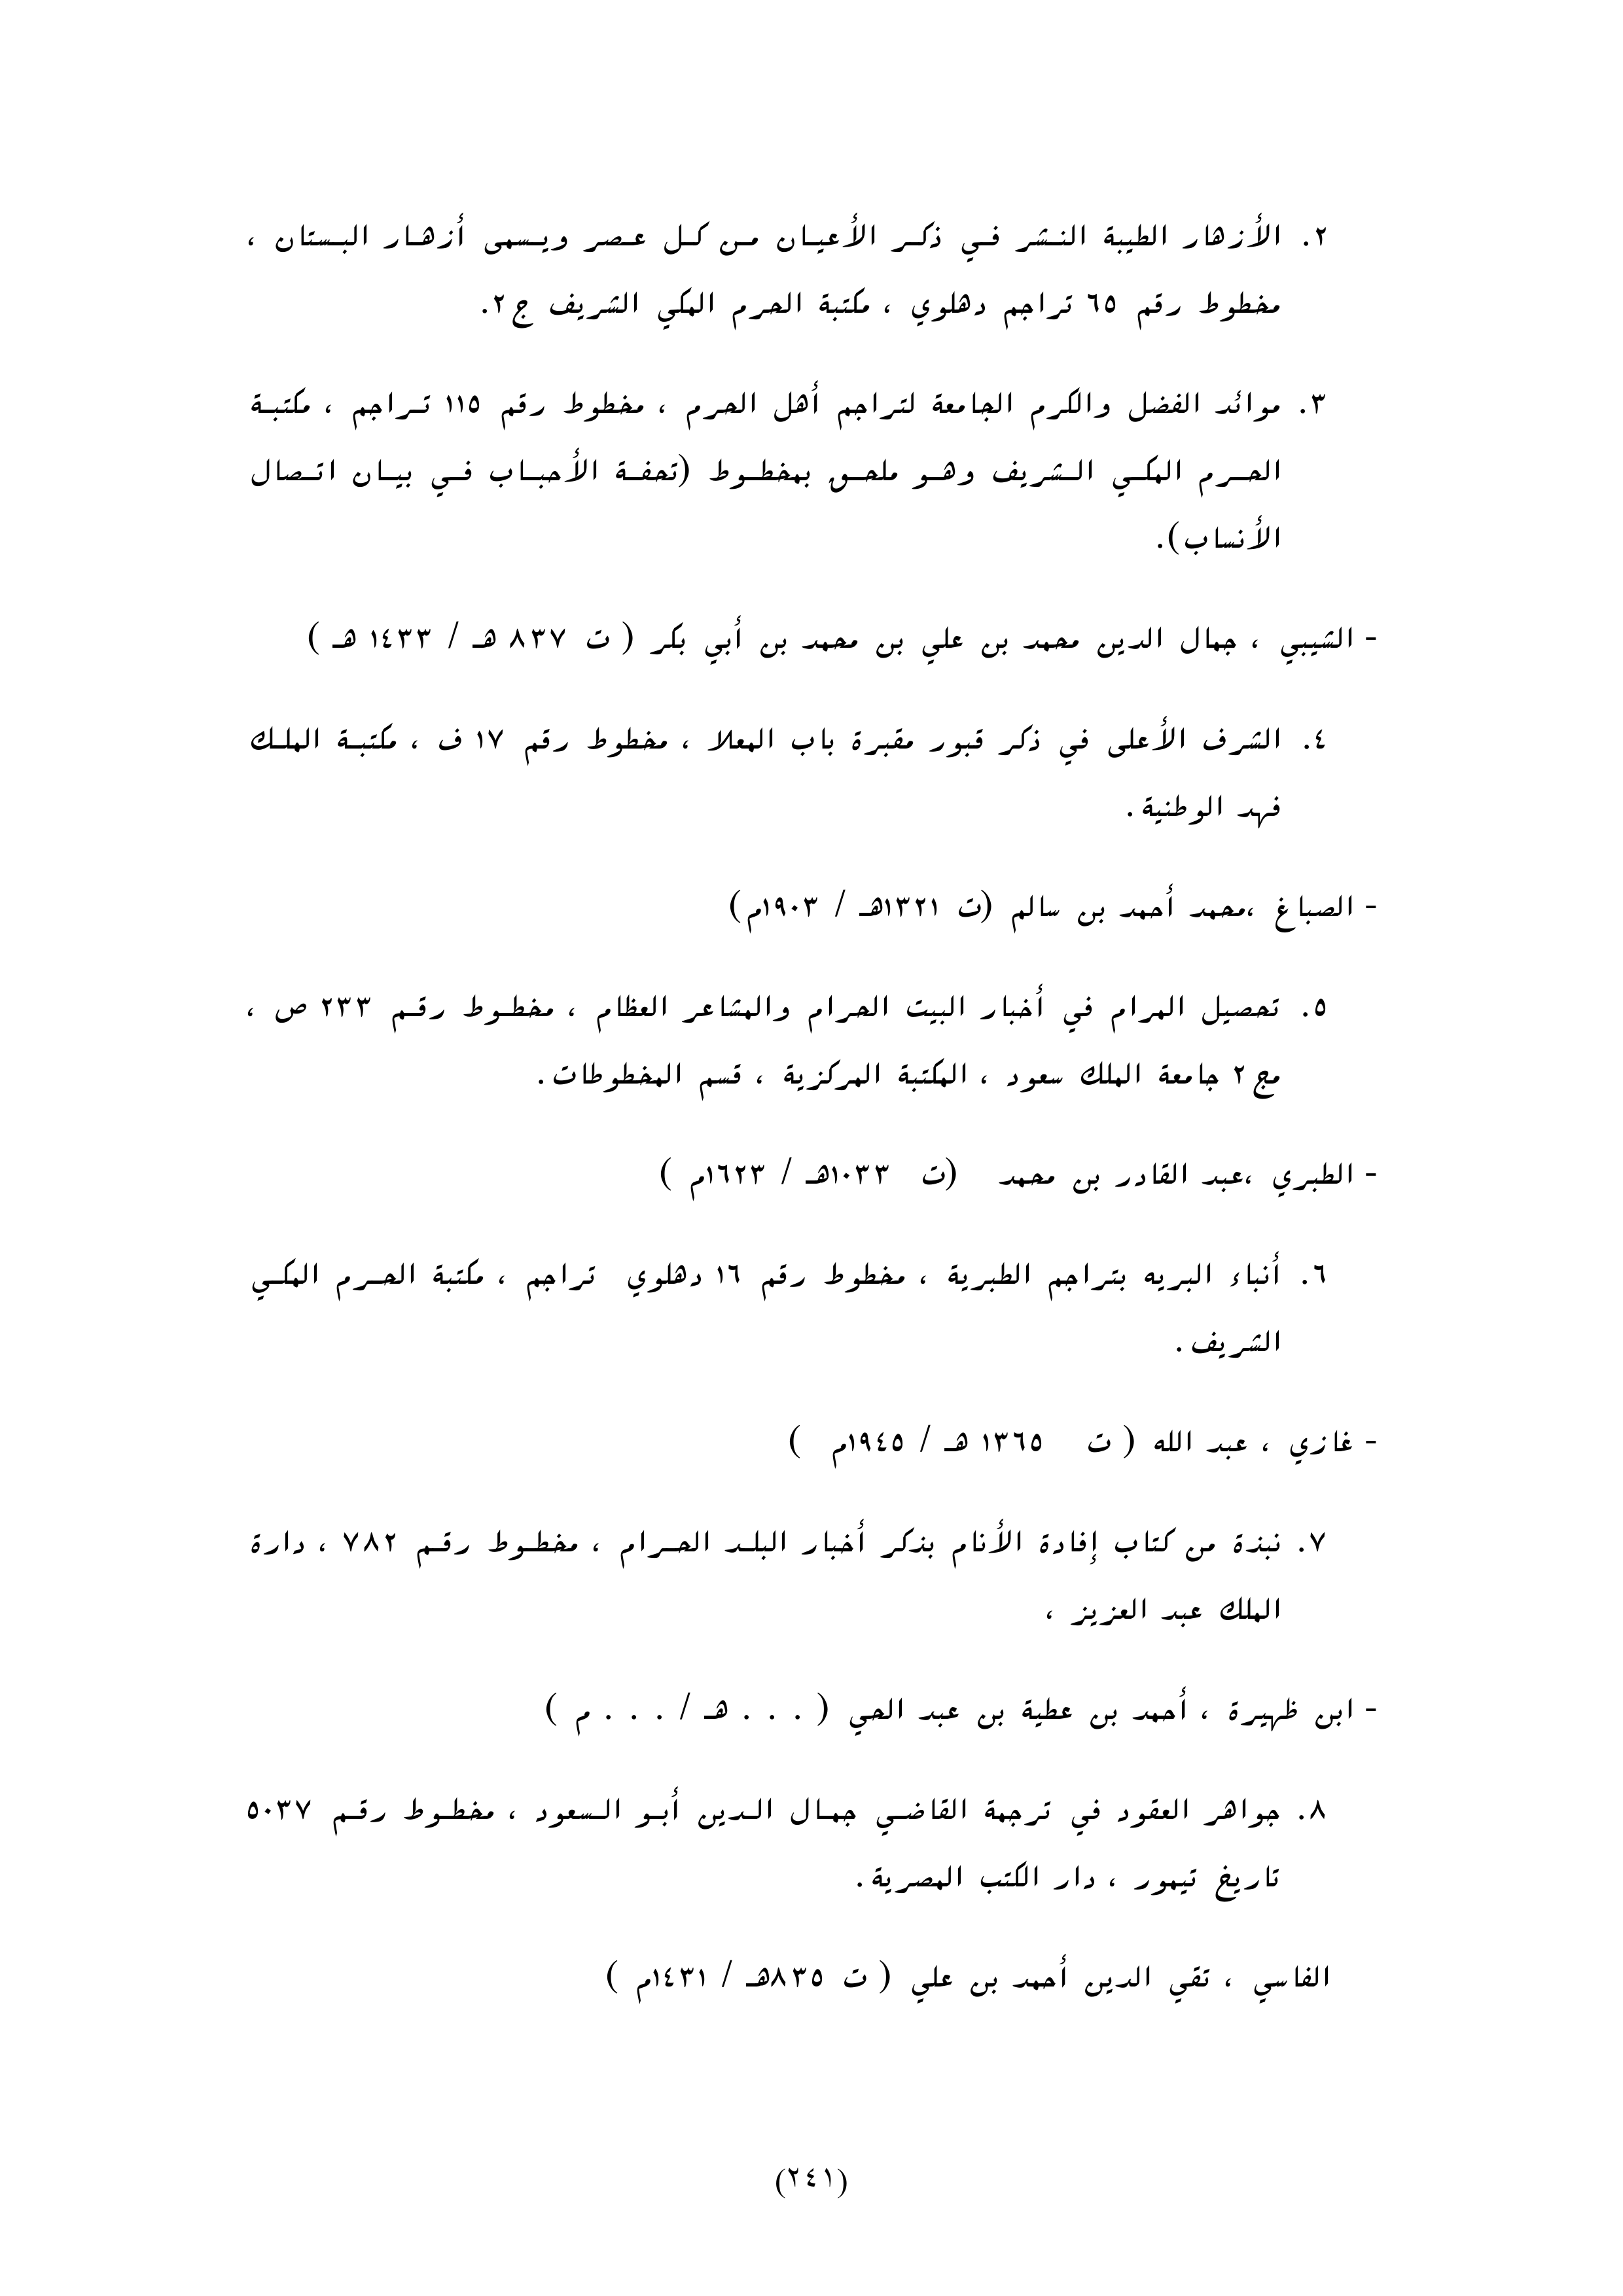 ٢. الأزهار الطيبة النشر في ذكر الأعيان من كل عصر ويسمى أزهار البستان ،
مخطوط رقم ٦٥ تراجم دهلوي ، مكتبة الحرم المكي الشريف ج٢.
٣. موائد الفضل والكرم الجامعة لتراجم أهل الحرم ، مخطوط رقم ١١٥ تراجم ، مكتبة
الحرم المكي الشريف وهو ملحق بمخطوط (تحفة الأحباب في بيان اتصال
الأنساب).
- الشيبي ، جمال الدين محمد بن علي بن محمد بن أبي بكر ( ت ٨٣٧ هـ / ١٤٣٣ هـ )
٤. الشرف الأعلى في ذكر قبور مقبرة باب المعلا ، مخطوط رقم ١٧ ف ، مكتبة الملك
فهد الوطنية .
- الصباغ ،محمد أحمد بن سالم (ت ١٣٢١هـ / ١٩٠٣م)
٥. تحصيل المرام في أخبار البيت الحرام والمشاعر العظام ، مخطوط رقم ٢٣٣ ص ،
مج ٢ جامعة الملك سعود ، المكتبة المركزية ، قسم المخطوطات.
- الطبري ،عبد القادر بن محمد (ت ١٠٣٣هـ / ١٦٢٣م )
٦. أنباء البريه بتراجم الطبرية ، مخطوط رقم ١٦ دهلوي تراجم ، مكتبة الحرم المكي
الشريف .
- غازي ، عبد الله ( ت ١٣٦٥ هـ / ١٩٤٥م )
٧. نبذة من كتاب إفادة الأنام بذكر أخبار البلد الحرام ، مخطوط رقم ٧٨٢ ، دارة
الملك عبد العزيز ،
- ابن ظهيرة ، أحمد بن عطية بن عبد الحي ( . . . هـ / . . . م )
٨. جواهر العقود في ترجمة القاضي جمال الدين أبو السعود ، مخطوط رقم ٥٠٣٧
تاريخ تيمور ، دار الكتب المصرية.
الفاسي ، تقي الدين أحمد بن علي ( ت ٨٣٥هـ / ١٤٣١م )
(٢٤١)